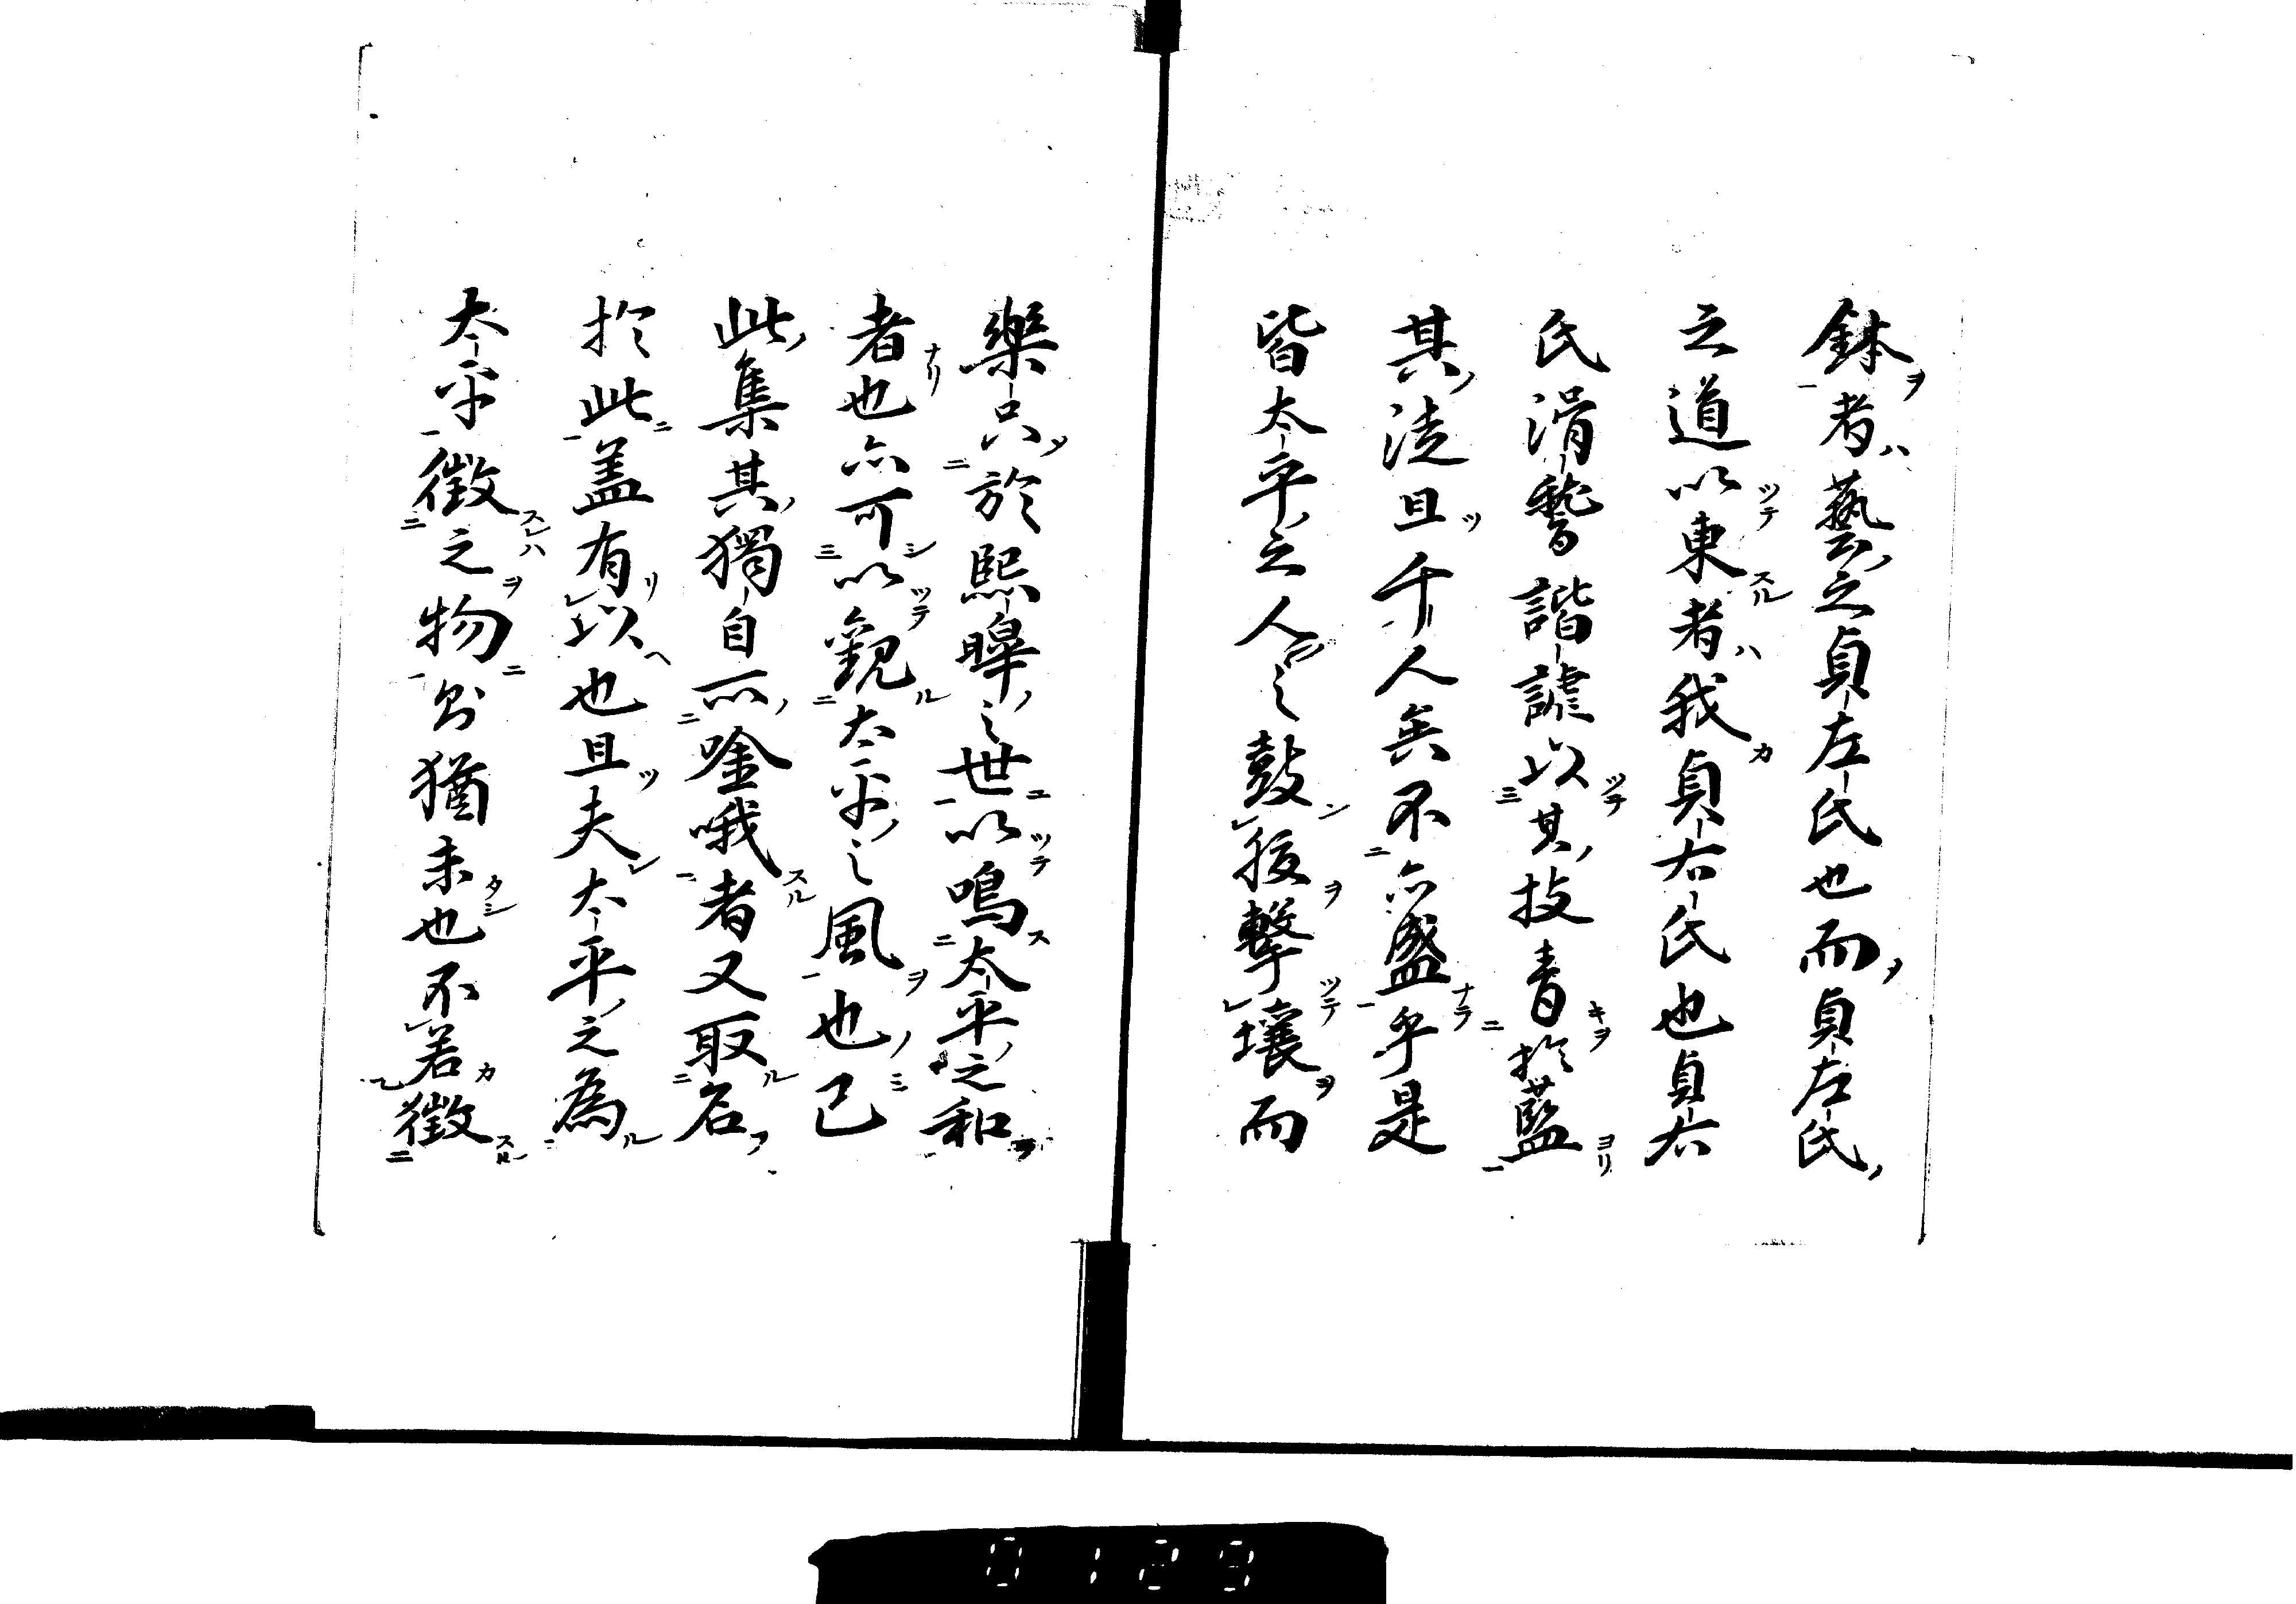 鉢者藝之貞左氏也而貞左氏
之道以東者我貞右氏也貞右
氏滑稽諧謔以其技青於藍
其徒且千人矣不亦盛乎是
皆太平之人之鼓腹擊壤而
樂只於熙皞之世以鳴太平之和
者也亦可以觀太平之風也已
此集其獨自所唫哦者又取名
於此盖有以也且夫太平之為
太平徵之物則猶未也不若徵
0129